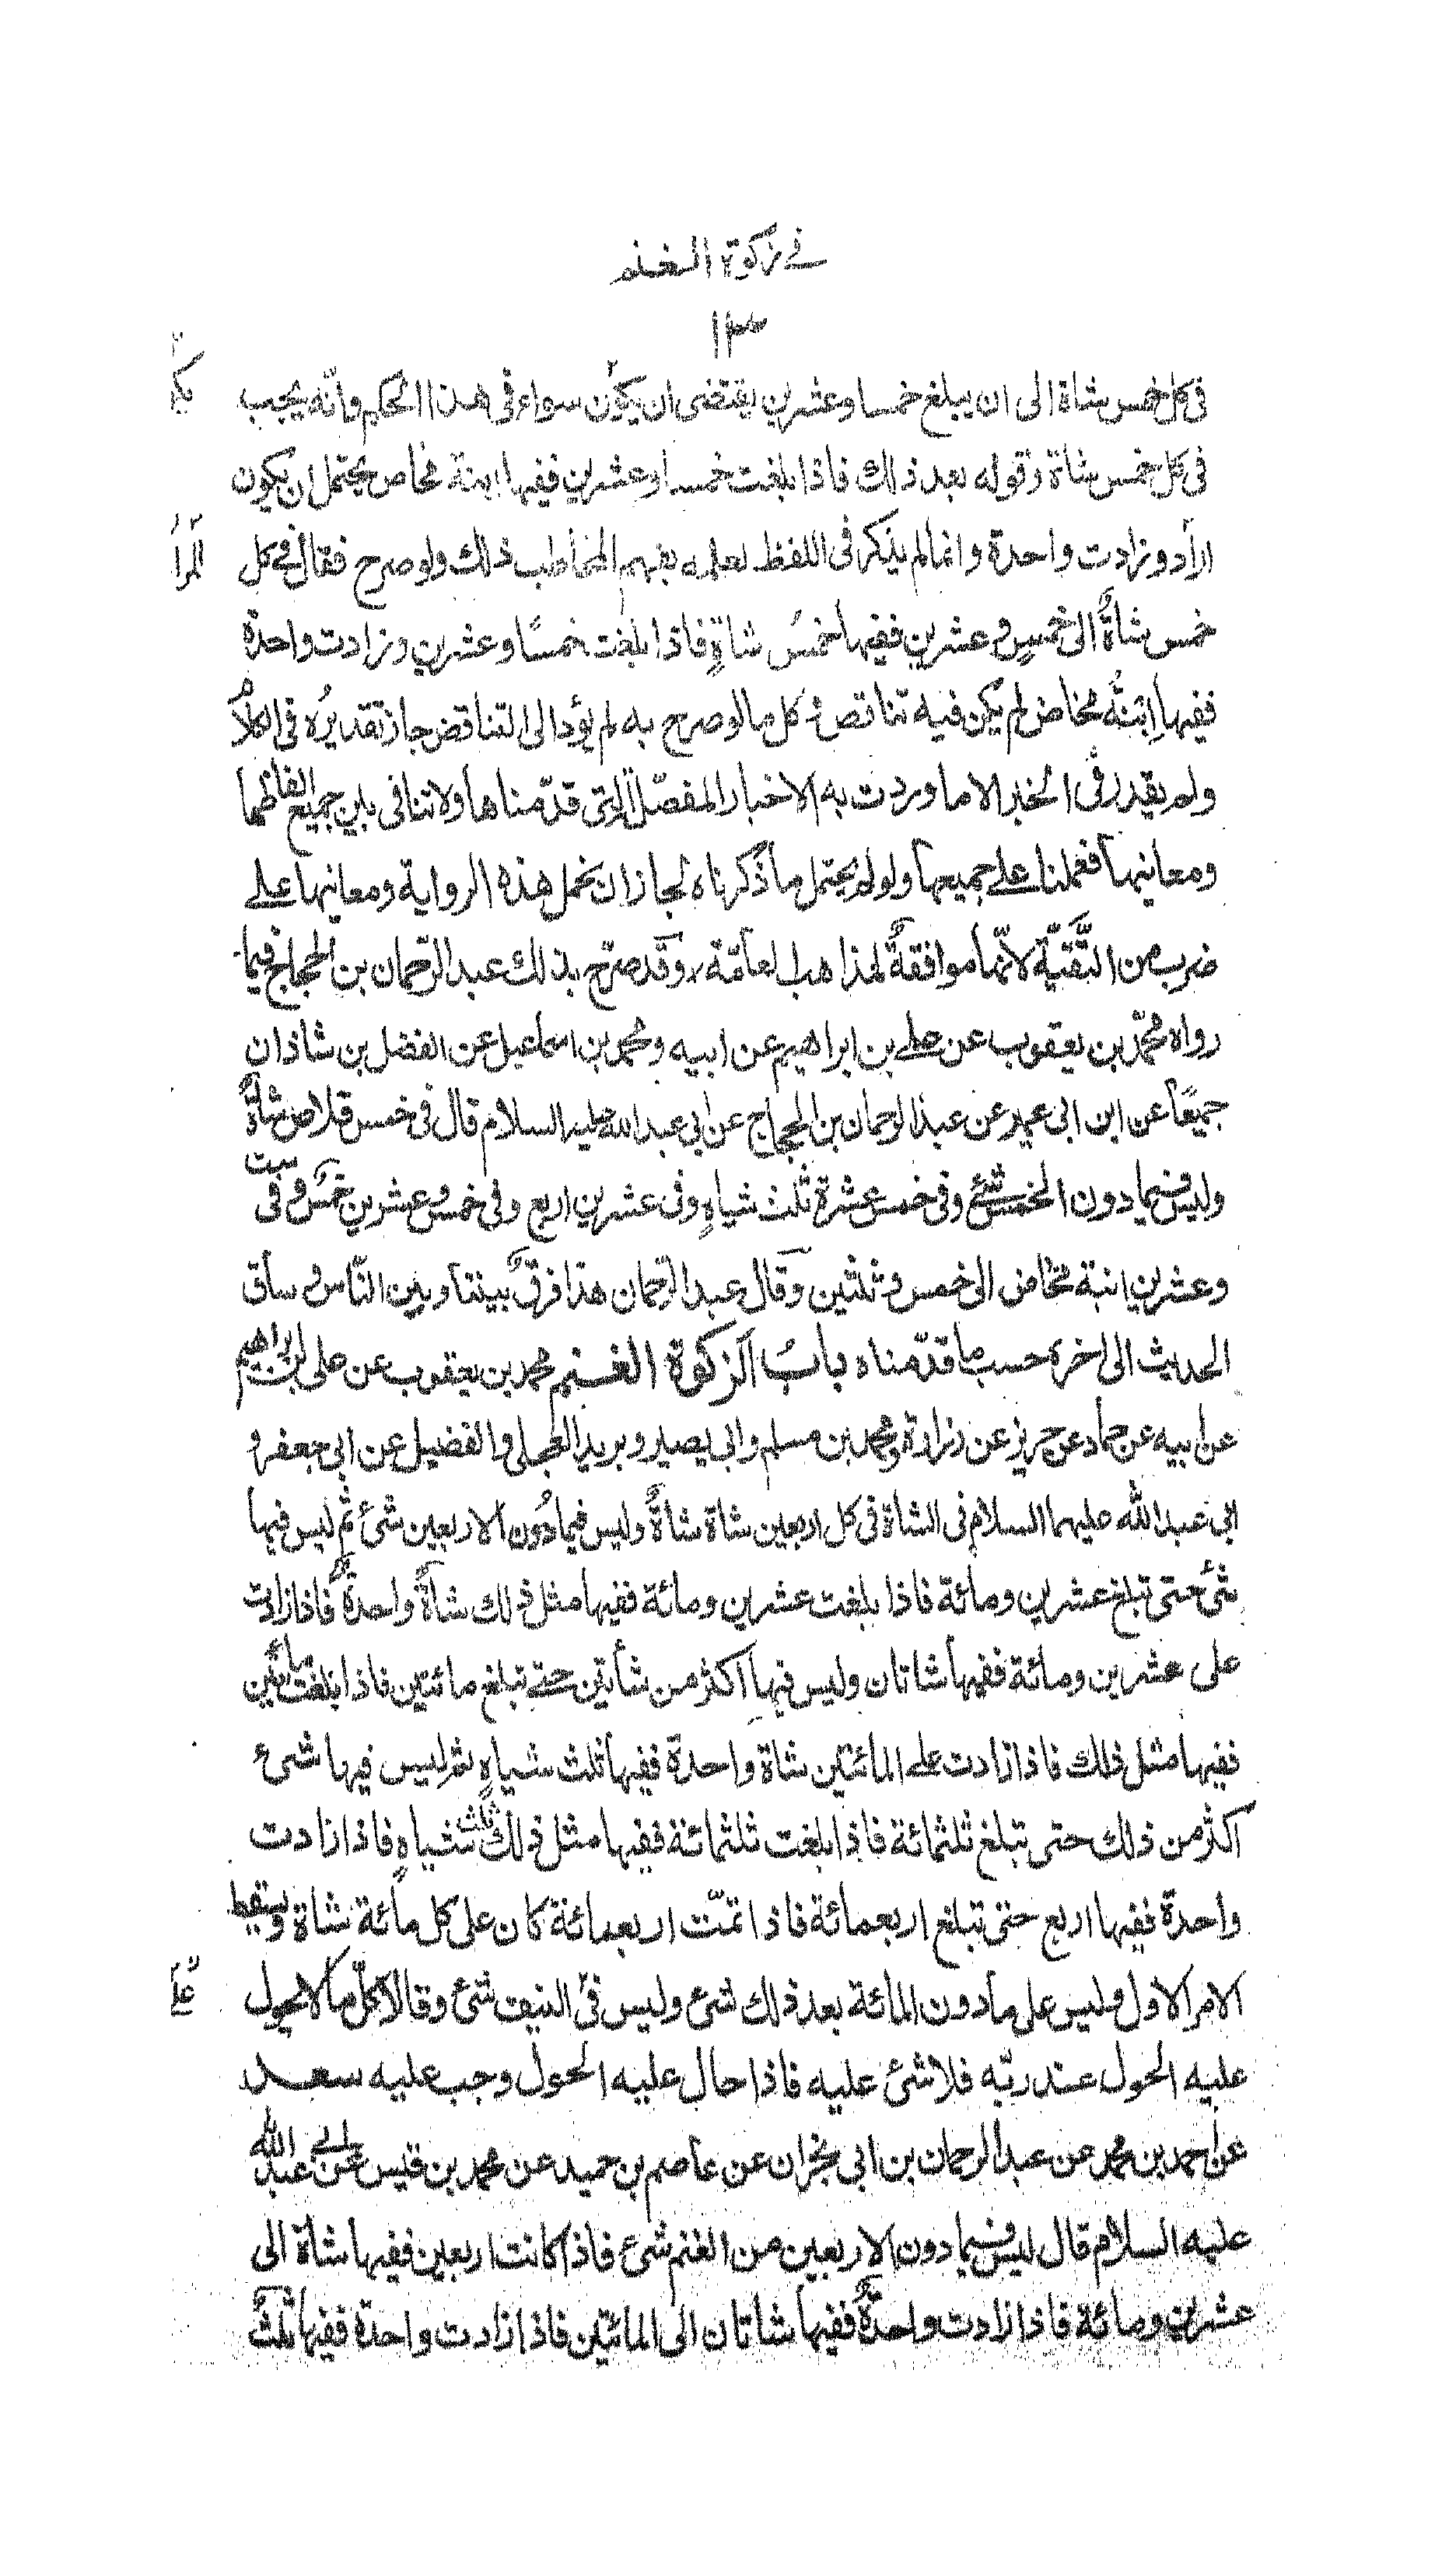 في زكوة الغنم
١٣
في كل خمس شاة الى ان يبلغ خمسا وعشرين يقتضى ان يكون سواء في هذا الحكم وانّه يجب
في كل خمس شاة وقوله بعد ذلك فاذا بلغت خمسا وعشرين ففيها ابنة مخاض يحتمل ان يكون
اراد وزادت واحدة وانما لم يذكر في اللفظ لعلمه بفهم المخاطب ذلك ولو صرح فقال في كل
خمس شاةٌ الى خمسٍ وعشرين ففيها خمسُ شاةٍ فاذا بلغت خمسًا وعشرين وزادت واحدة
ففيها ابنةُ مخاض لم يكن فيه تناقض وكل ما لو صرح به لم يؤد الى التناقض جاز تقديرُه في الكلام
ولم يقدر في الخبر الا ما وردت به الاخبار المفصّلة التي قدّمناها ولا تنافى بين جميع الفاظها
ومعانيها فعملنا على جميعها ولو لم يحتمل ما ذكرناه لجاز ان نحمل هذه الرواية ومعانيها على
ضرب من التَّقيّة لانّها موافقةٌ لمذاهب العامّة وقد صرّح بذلك عبد الرّحمان بن الحجاج فيما
رواه محمّد بن يعقوب عن على بن ابراهيم عن ابيه ومحمد بن اسماعيل عن الفضل بن شاذان
جميعًا عن ابن ابى عمير عن عبد الرحمان بن الحجاج عن ابي عبد الله عليه السلام قال في خمس قلاص شاةٌ
وليس فيما دون الخمس شئ وفي خمس عشرة ثلث شياهٍ وفى عشرين اربع وفي خمس وعشرين خمسٌ وفى ست
وعشرين ابنة مخاض الى خمس وثلثين وقال عبد الرّحمان هذا فرقٌ بيننا وبين النّاس وساق
الحديث الى اخره حسب ما قدّمناه بابُ الزكوة الغنم محمد بن يعقوب عن على بن ابراهيم
عن ابيه عن حماد عن حريز عن زرارة ومحمد بن مسلم وابي بصير وبريد العجلى والفضيل عن ابي جعفر و
ابي عبد الله عليهما السلام في الشاة في كل اربعين شاة شاةٌ وليس فيما دُون الاربعين شئ ثم ليس فيها
شئ حتى تبلغ عشرين ومائة فاذا بلغت عشرين ومائة ففيها مثل ذلك شاةٌ واحدةٌ فاذا زادت
على عشرين ومائة ففيها شاتان وليس فيها اكثر من شاتين حتى تبلغ مائتين فاذا بلغت مائتين
ففيها مثل ذلك فاذا زادت على المائتين شاة واحدة ففيها ثلث شياهٍ ثم ليس فيها شئ
اكثر من ذلك حتى تبلغ ثلثمائة فاذا بلغت ثلثمائة ففيها مثل ذلك ثلث شياهٍ فاذا زادت
واحدة ففيها اربع حتى تبلغ اربعمائة فاذا تمّت اربعمائة كان على كل مائة شاة ويسقط
الامر الاول وليس على ما دون المائة بعد ذلك شئ وليس في النيف شئ وقالا كلّ ما لا يحول
عليه الحول عند ربّه فلا شئ عليه فاذا حال عليه الحول وجب عليه سعد
عن احمد بن محمد عن عبد الرحمان بن ابى نجران عن عاصم بن حميد عن محمد بن قيس عن ابي عبد الله
عليه السلام قال ليس فيما دون الاربعين من الغنم شئ فاذا كانت اربعين ففيها شاة الى
عشرين ومائة فاذا زادت واحدةٌ ففيها شاتان الى المائتين فاذا زادت واحدة ففيها ثلث